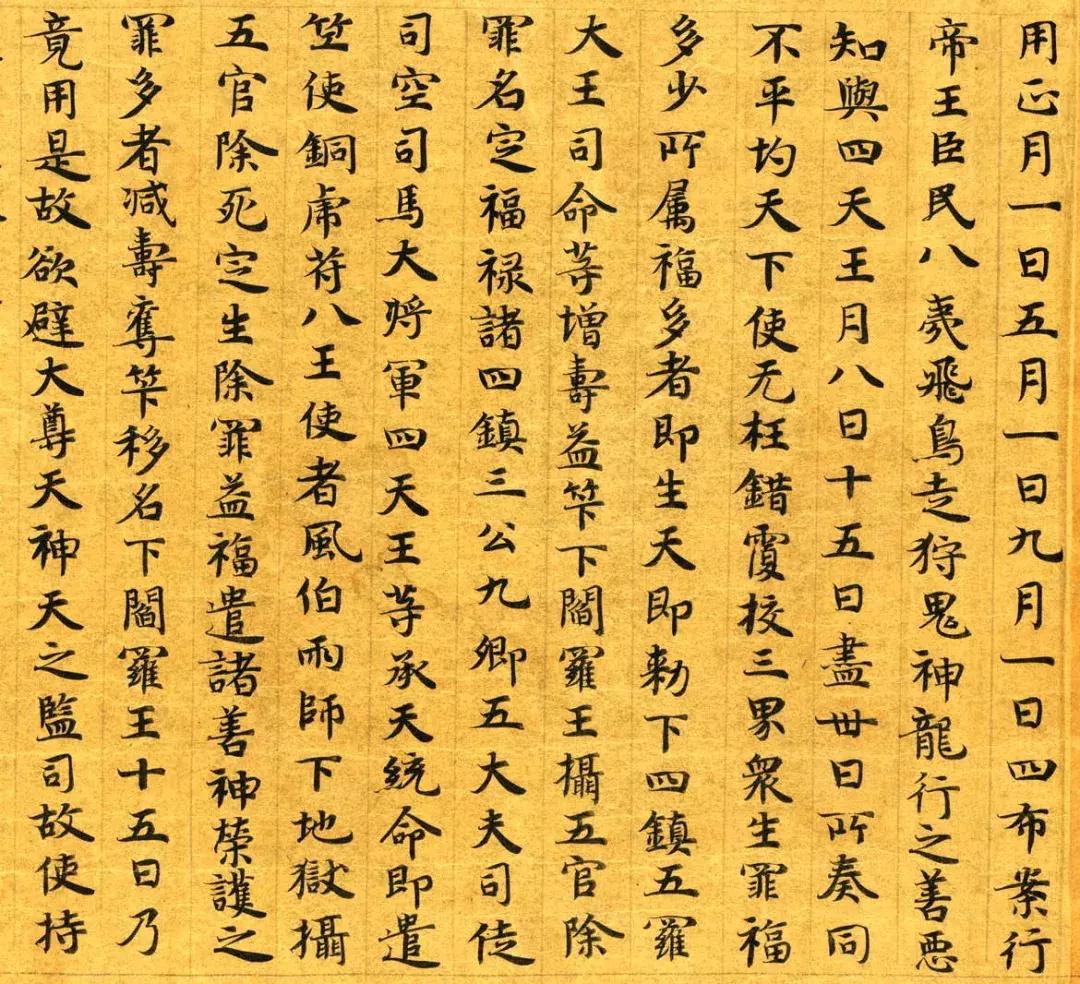 用正月一日五月一日九月一日四布案行
帝王臣民八夷飛鳥走狩鬼神龍行之善惡
知與四天王月八日十五日盡卅日所奏同
不平均天下使无枉錯覆校三界眾生罪福
多少所属福多者即生天即勑下四鎮五羅
大王司命等增壽益竿下閻羅王攝五官除
罪名定福禄諸四鎮三公九卿五大夫司徒
司空司馬大將軍四天王等承天統命即遣
竺使銅虎符八王使者風伯雨師下地獄攝
五官除死定生除罪益福遣諸善神榮護之
罪多者减壽奪竿移名下閻羅王十五日乃
竟用是故欲避大尊天神天之監司故使持